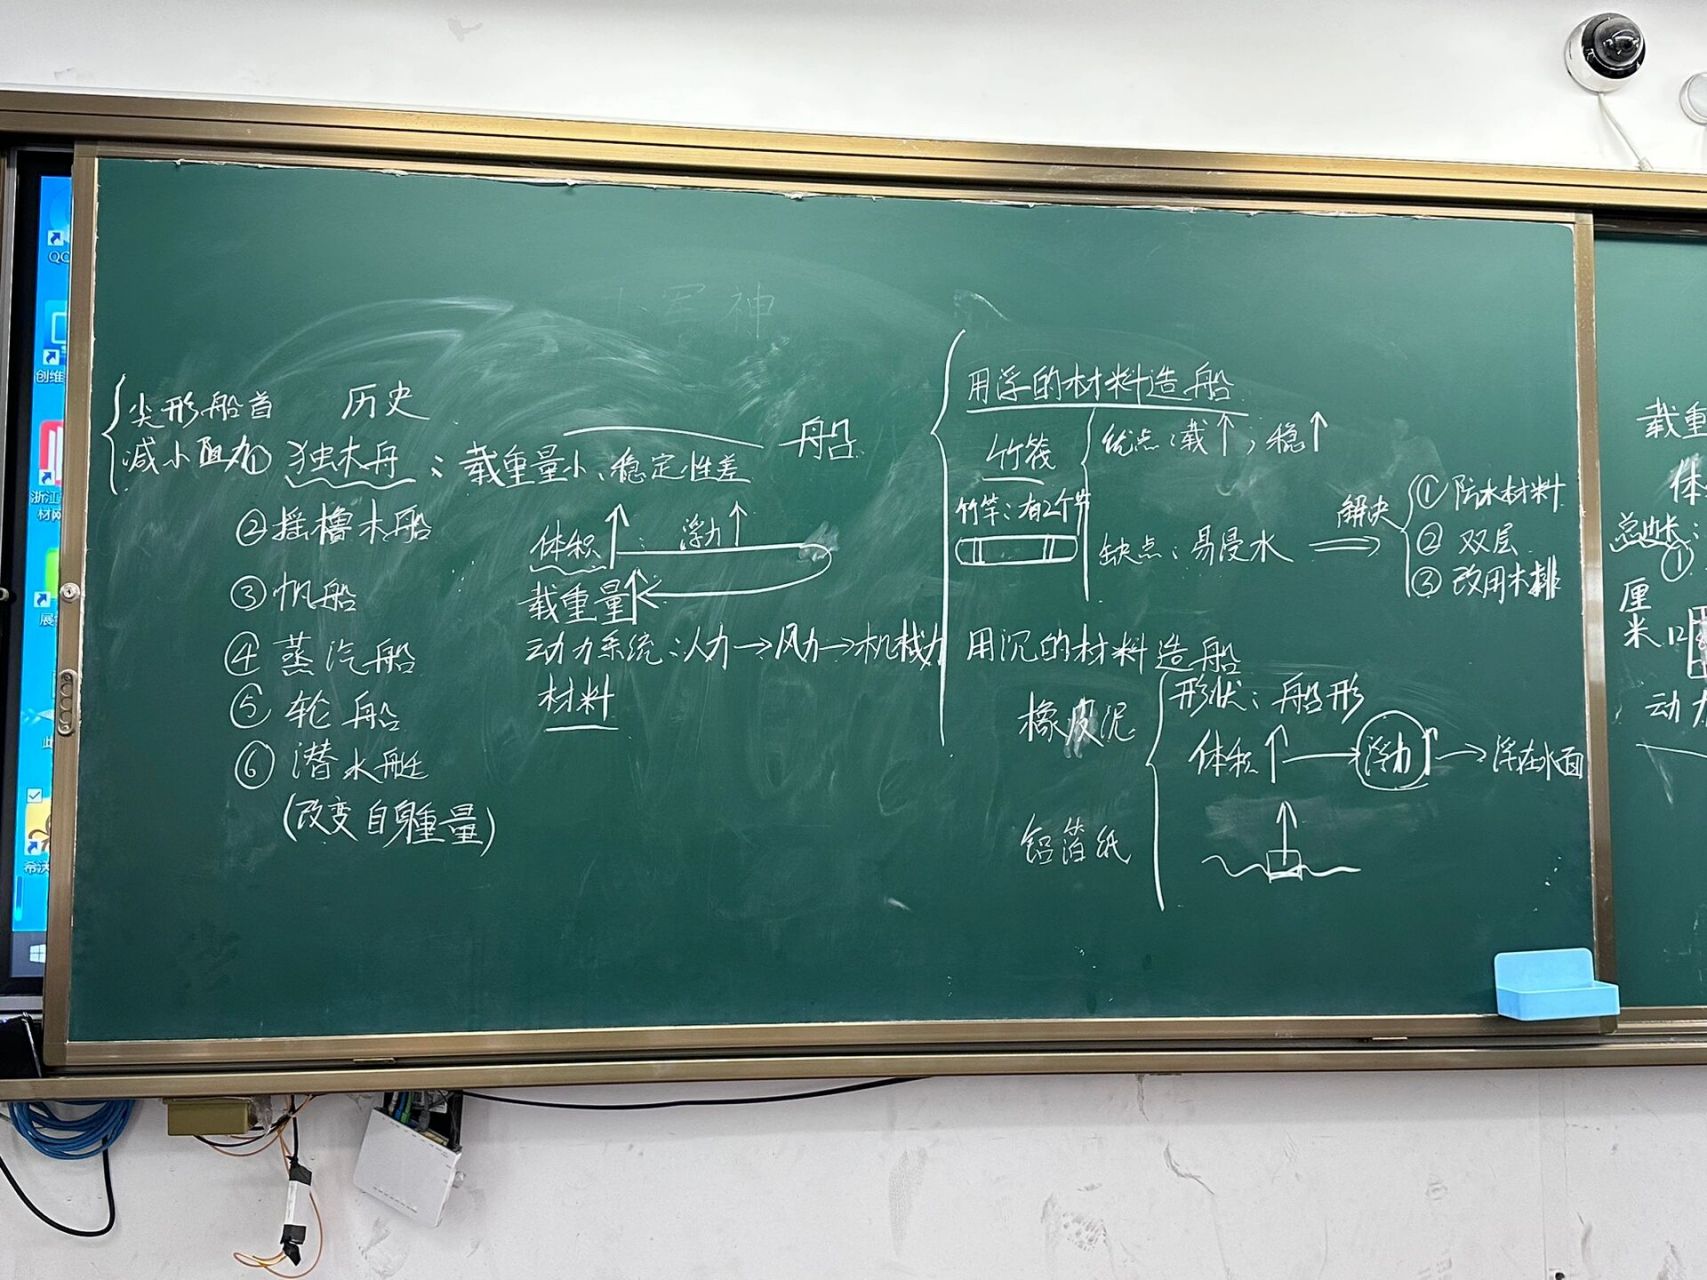 尖形船首
减小阻力
历史
船
①独木舟：载重量小、稳定性差
②摇橹木船
③帆船
④蒸汽船
⑤轮船
⑥潜水艇
(改变自身重量)
体积↑：浮力↑
载重量↑
动力系统：人力→风力→机械力
材料
用浮的材料造船
竹筏
优点：载↑，稳↑
竹竿：有2个节
缺点：易浸水
解决
①防水材料
②双层
③改用木排
用沉的材料造船
橡皮泥
形状：船形
体积↑→浮力↑→浮在水面
铝箔纸
载重
体
总边长：
①
厘
米12
动力
军神
QQ
创维
浙江
展
希沃